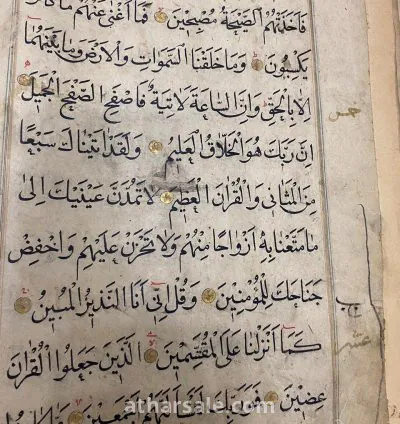 فَأَخَذَتْهُمُ الصَّيْحَةُ مُصْبِحِينَ فَمَا أَغْنَى عَنْهُمْ مَا كَانُوا
يَكْسِبُونَ وَمَا خَلَقْنَا السَّمَوَاتِ وَالْأَرْضَ وَمَا بَيْنَهُمَا
إِلَّا بِالْحَقِّ وَإِنَّ السَّاعَةَ لَآتِيَةٌ فَاصْفَحِ الصَّفْحَ الْجَمِيلَ
إِنَّ رَبَّكَ هُوَ الْخَلَّاقُ الْعَلِيمُ وَلَقَدْ آتَيْنَاكَ سَبْعًا
مِنَ الْمَثَانِي وَالْقُرْآنَ الْعَظِيمَ لَا تَمُدَّنَّ عَيْنَيْكَ إِلَى
مَا مَتَّعْنَا بِهِ أَزْوَاجًا مِنْهُمْ وَلَا تَحْزَنْ عَلَيْهِمْ وَاخْفِضْ
جَنَاحَكَ لِلْمُؤْمِنِينَ وَقُلْ إِنِّي أَنَا النَّذِيرُ الْمُبِينُ
كَمَا أَنْزَلْنَا عَلَى الْمُقْتَسِمِينَ الَّذِينَ جَعَلُوا الْقُرْآنَ
عِضِينَ فَوَرَبِّكَ لَنَسْأَلَنَّهُمْ أَجْمَعِينَ
خمس
عشر
atharsale.com